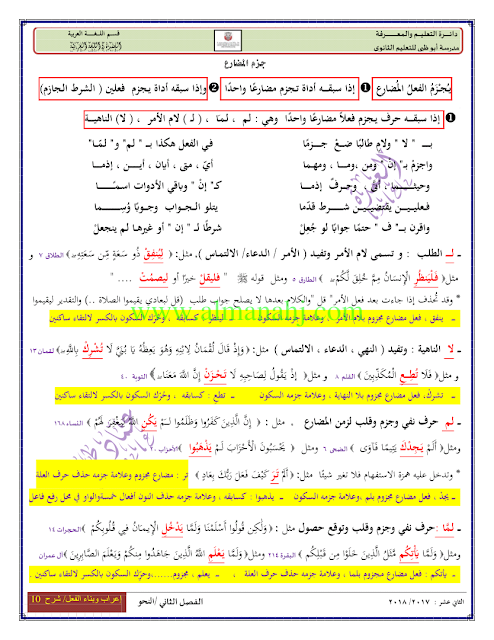 دائـرة التعليـم والمعـــرفة
مدرسة أبو ظبي للتعليم الثانوي
قـــم اللـغـــة العربية
جزم المضارع
يُجْزَمُ الفعلُ المُضارع ❶ إذا سبقـه أداة تـجزم مضارعًا واحدًا ❷ وإذا سبقه أداة يجزم فعلين ( الشرط الجازم)
❶ إذا سبقــه حرف يجزم فعلاً مضارعًا واحدًا وهي : لم ، لـمّا ، ( لـ ) لام الأمر ، ( لا ) الناهيـة
بــ " لا " ولام طالبًا ضـعْ جـــزمًا في الفعل هكذا بـ " لم" و" لمّا"
واجزمْ بـ" إن " ومن ،ومـا ، ومهما أيّ ، متى ، أيان ، أيـــن ، إذمــا
وحيثمــــا ، أنى ، وحـرفٌ إذمـا كـ" إنْ " وباقي الأدوات اسمًــــا
فعلـيــن يقتضيــن شـــرط قدّما يتلو الجـواب وجـوبًا وُسِـــما
واقرن بــ" ف " حتمًا جوابًا لو جُعِلْ شرطًا لـ " إن " أو غيرها لم ينجعلْ
ـ لــ الطلب : و تسمى لام الأمر وتفيد ( الأمر / الدعاء/ الالتماس )، مثل: ﴿ لِيُنْفِقْ ذُو سَعَةٍ مِّن سَعَتِهِ﴾ الطلاق ٧ و
مثل﴿ فَلْيَنظُرِ الْإِنسَانُ مِمَّ خُلِقَ ﴾ الطارق ٥ ومثل قوله ﷺ " فليقلْ خيرًا أو ليصمُتْ .... "
* وقد تُحذف إذا جاءت بعد فعل الأمر" قل "والكلام بعدها لا يصلح جواب طلب (قل لعبادي يقيموا الصلاة ..) والتقدير ليقيموا
ـ ينفق ، فعل مضارع مجزوم بلام الأمر ، وعلامة جزمه السكون ـ لينظر: كسابقه ، وحُرّك السكون بالكسر لالتقاء ساكنين
ـ لا الناهية : وتفيد ( النهي ، الدعاء ، الالتماس ) مثل: ﴿ وَإِذْ قَالَ لُقْمَانُ لِابْنِهِ وَهُوَ يَعِظُهُ يَا بُنَيَّ لَا تُشْرِكْ بِاللَّهِ﴾ لقمان١٣
و مثل ﴿فَلَا تُطِعِ الْمُكَذِّبِينَ﴾ القلم ٨ و مثل﴿ إِذْ يَقُولُ لِصَاحِبِهِ لَا تَحْزَنْ إِنَّ اللَّهَ مَعَنَا﴾ التوبة ٤٠
ـ تشركْ، فعل مضارع مجزوم بلا النهاية ، وعلامة جزمه السكون ـ تطعِ : كسابقه ، وحُرّك السكون بالكسر لالتقاء ساكنين
ـ لم حرف نفي وجزم وقلب لزمن المضارع ، مثل : ﴿ إِنَّ الَّذِينَ كَفَرُوا وَظَلَمُوا لَـمْ يَكُنِ اللَّهُ لِيَغْفِرَ لَهُمْ ﴾ النساء ١٦٨
ومثل﴿أَلَمْ يَجِدْكَ يَتِيمًا فَآوَى ﴾ الضحى ٦ ومثل ﴿ يَحْسَبُونَ الْأَحْزَابَ لَـمْ يَذْهَبُوا ﴾الأحزاب ٢٠
* وتدخل عليه همزة الاستفهام فلا تغير شيئًا مثل: ﴿ أَلَمْ تَرَ كَيْفَ فَعَلَ رَبُّكَ بِعَادٍ ﴾ تر : مضارع مجزوم وعلامة جزمه حذف حرف العلة
ـ يجدْ ، فعل مضارع مجزوم بلم ،وعلامة جزمه السكون ـ يذهبوا : كسابقه ، وعلامة جزمه حذف النون أفعال خمسةوالواو في محل رفع فاعل
ـ لمّا :حرف نفي وجزم وقلب وتوقع حصول مثل : ﴿ وَلَكِن قُولُوا أَسْلَمْنَا وَلَمَّا يَدْخُلِ الْإِيمَانُ فِي قُلُوبِكُمْ ﴾الحجرات ١٤
ومثل ﴿ وَلَمَّا يَأْتِكُم مَّثَلُ الَّذِينَ خَلَوْا مِن قَبْلِكُم ﴾ البقرة ٢١٤ ومثل﴿وَلَمَّا يَعْلَمِ اللَّهُ الَّذِينَ جَاهَدُوا مِنكُمْ وَيَعْلَمَ الصَّابِرِينَ ﴾آل عمران
ـ يأتكم : فعل مضارع مجزوم بلما ، وعلامة جزمه حذف حرف العلة ، ـ يعلم ، مجزوم......،وحرّك السكون بالكسر لالتقاء ساكنين .
www.almanahj.com
الثاني عشر : ٢٠١٧/ ٢٠١٨
الفصـل الثاني /النحو
إعراب وبناء الفعل/ شرح 10